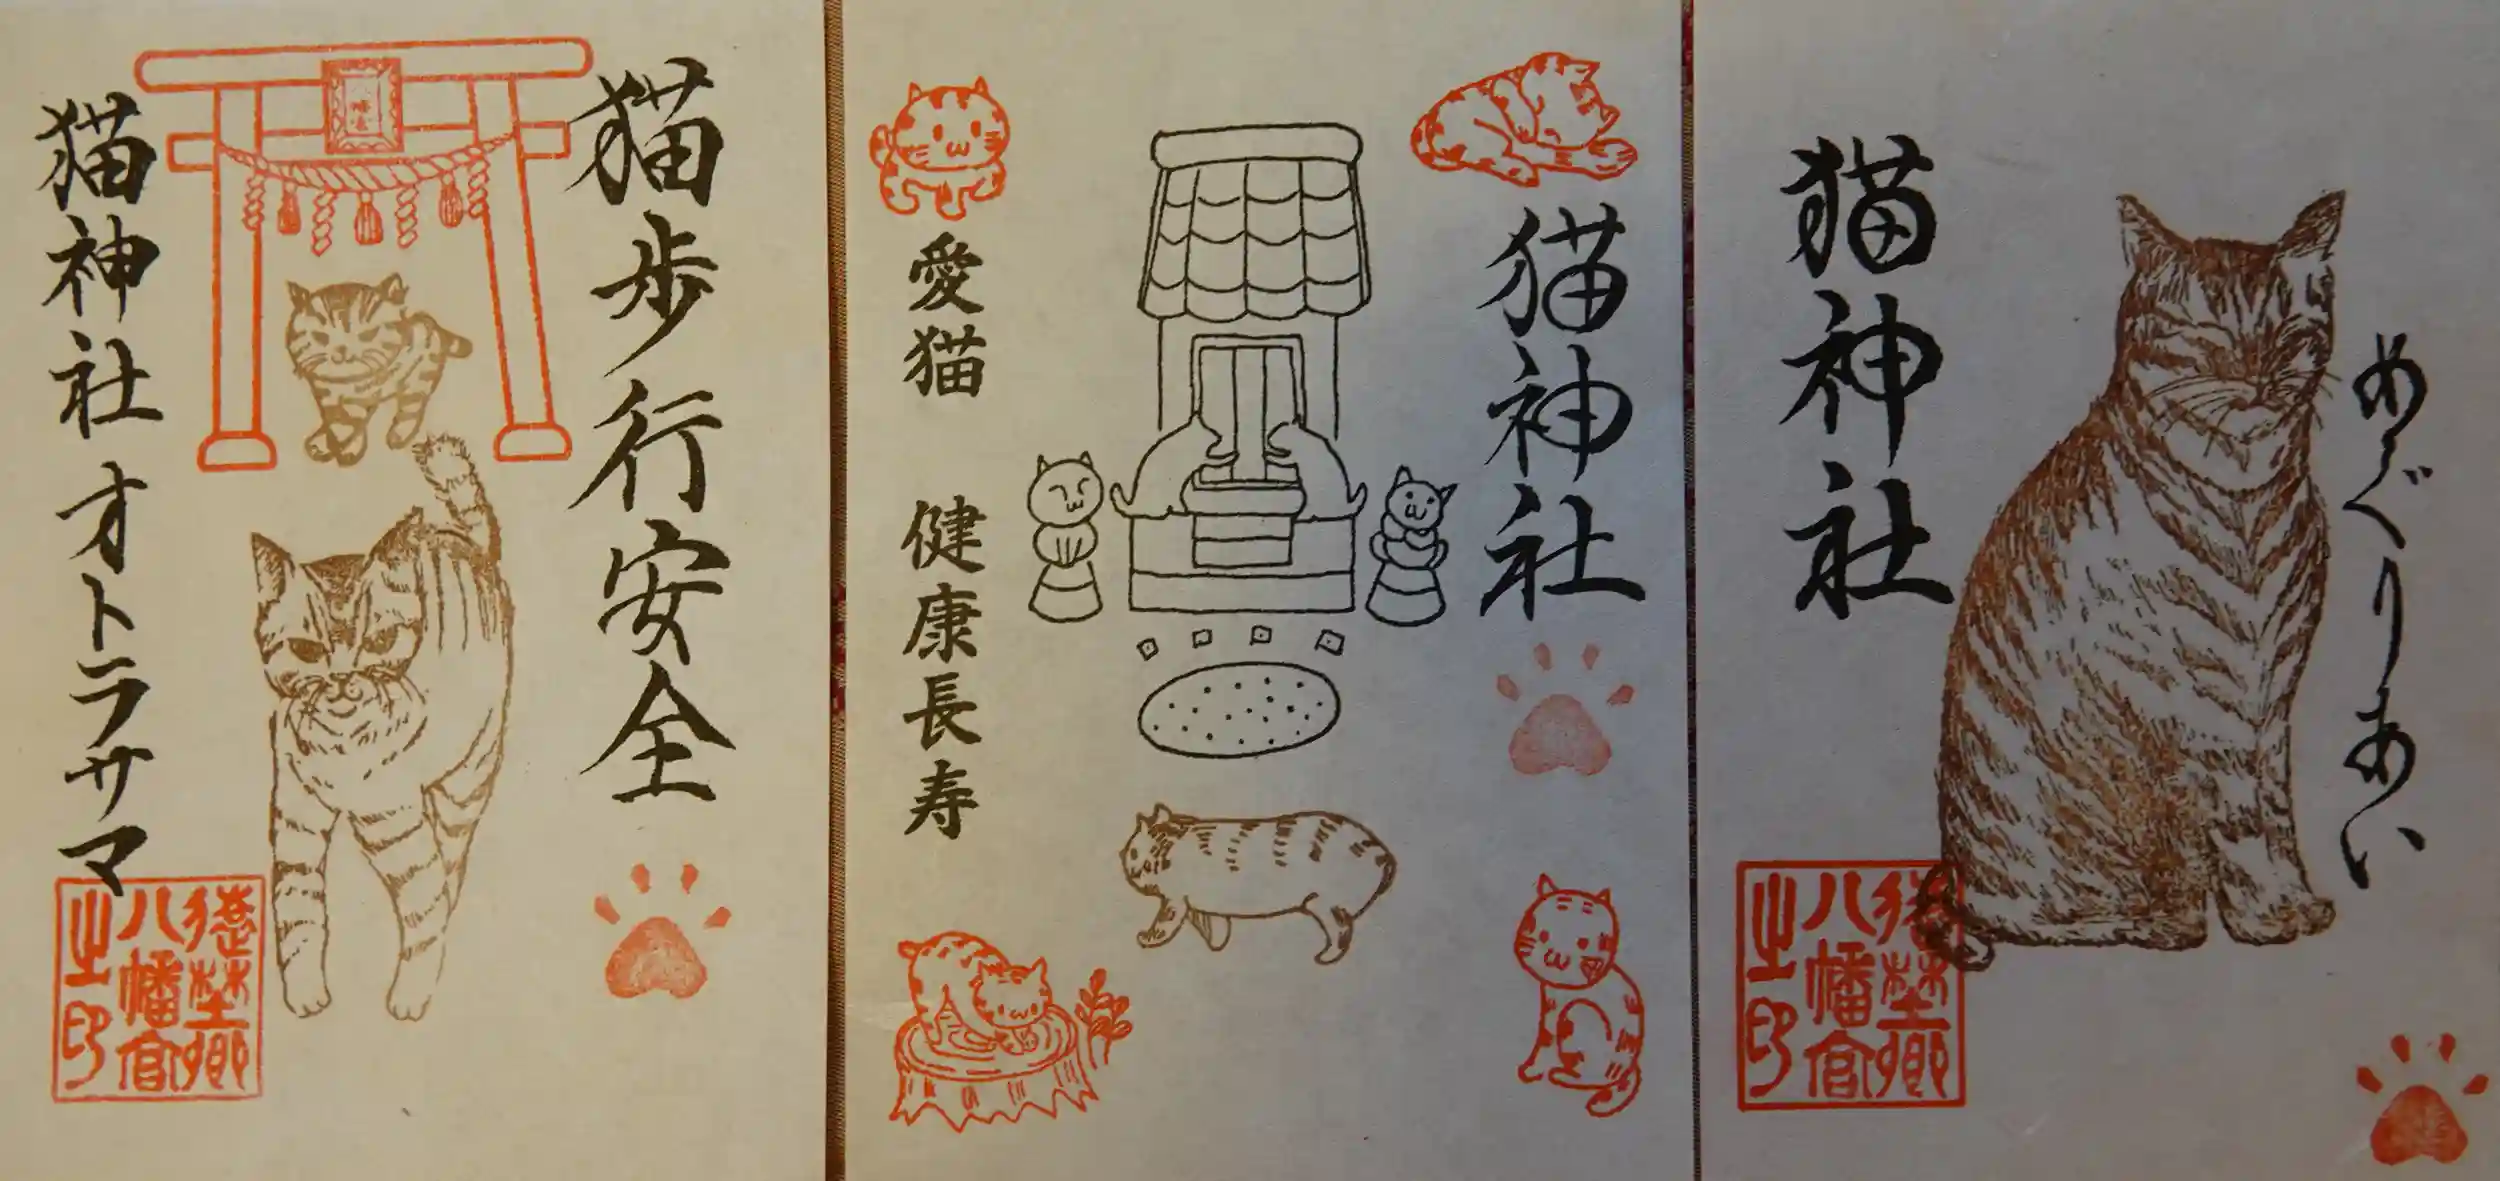 めぐりあい
猫神社
八幡宮
之印
猫神社
愛猫 健康長寿
猫歩行安全
猫神社 オトラサマ
八幡宮
之印